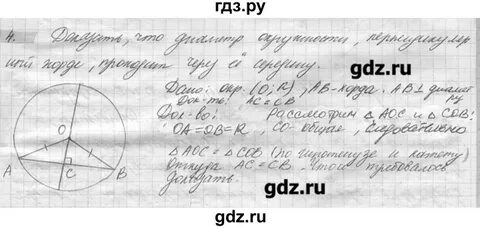 гдз.ру
4. Доказать, что диаметр окружности, перпендикуляр
ный хорде, проходит через её середину.
Дано: окр. (O; R), AB-хорда. AB⊥ диамет
ру
Док-ть: AC=CB
Док-во: Рассмотрим △ AOC и △ COB:
OA=OB=R, CO-общая, следовательно
△AOC = △COB (по гипотенузе и катету)
откуда AC=CB, что и требовалось
доказать.
O
A
C
B
gdz.ru
gdz.ru
gdz.ru
gdz.ru